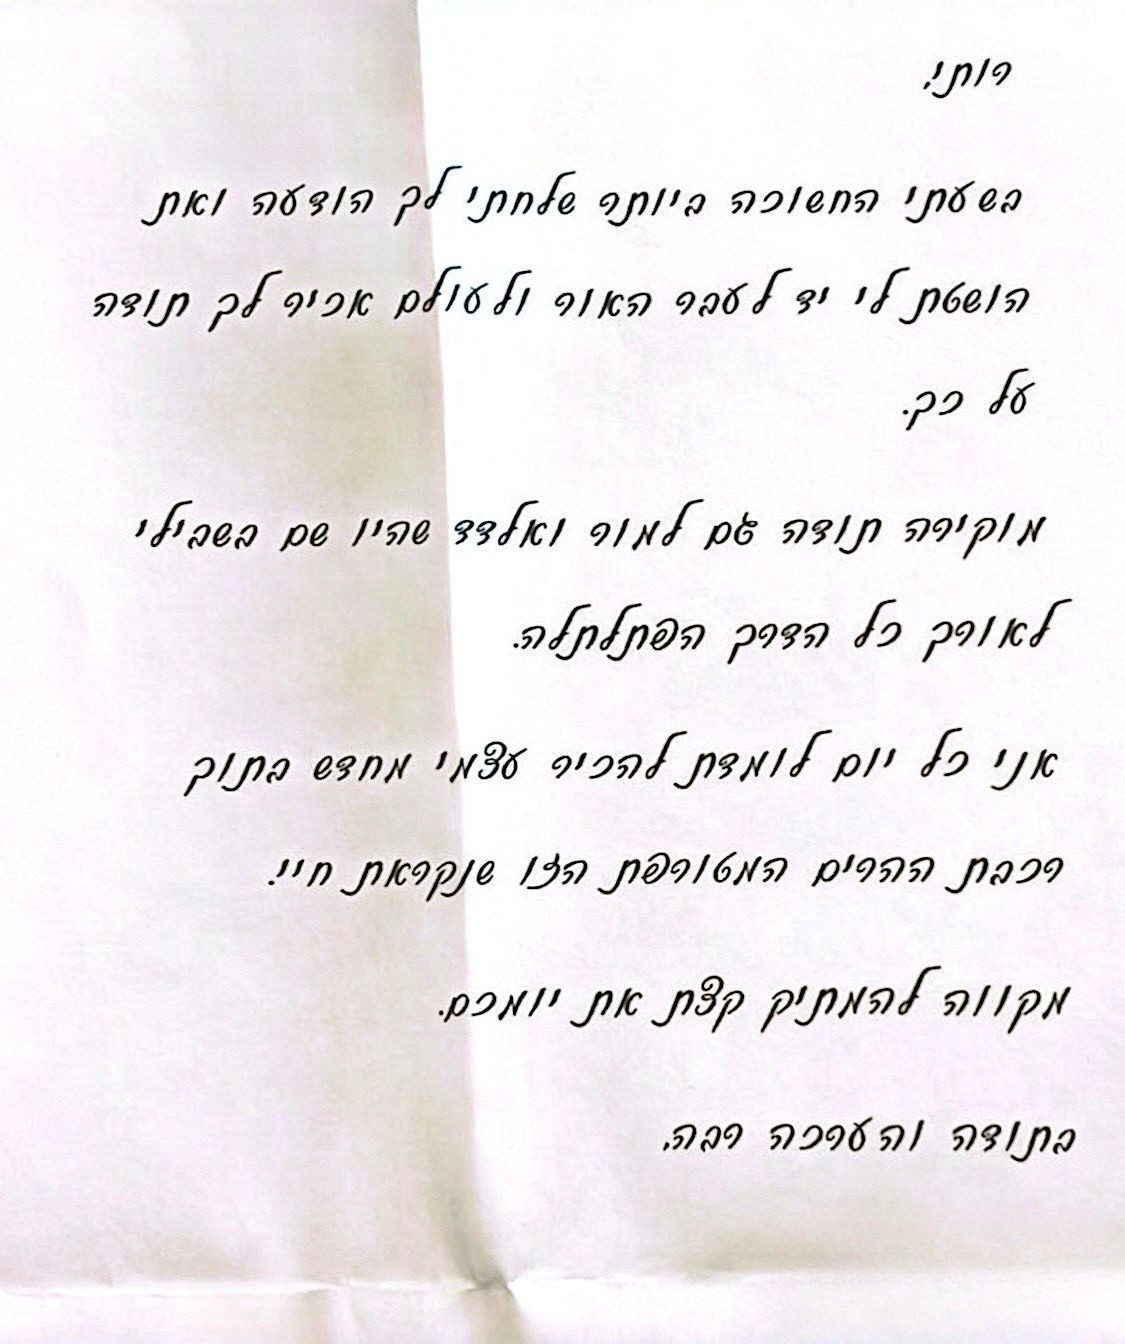 רותי,
בשעתי החשוכה ביותר שלחתי לך הודעה ואת
הושטת לי יד לעבר האור ולעולם אכיר לך תודה
על כך.
מוקירה תודה גם למור ואלדד שהיו שם בשבילי
לאורך כל הדרך הפתלתלה.
אני כל יום לומדת להכיר עצמי מחדש בתוך
רכבת ההרים המטורפת הזו שנקראת חיי.
מקווה להמתיק קצת את יומכם.
בתודה והערכה רבה,